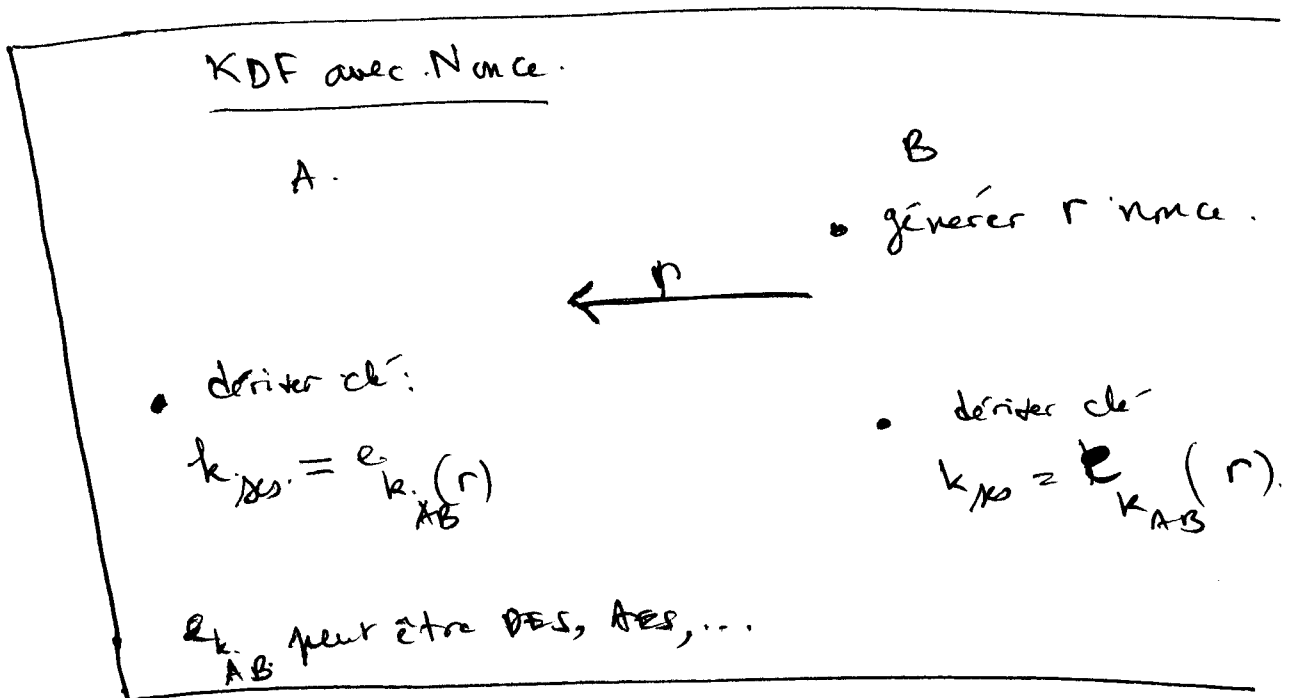 KDF avec Nonce.
A.
B
• générer r nonce.
r
• dériver clé:
k_ses. = e_k_AB(r)
• dériver clé
k_ses = e_k_AB(r).
e_k_AB peut être DES, AES,...